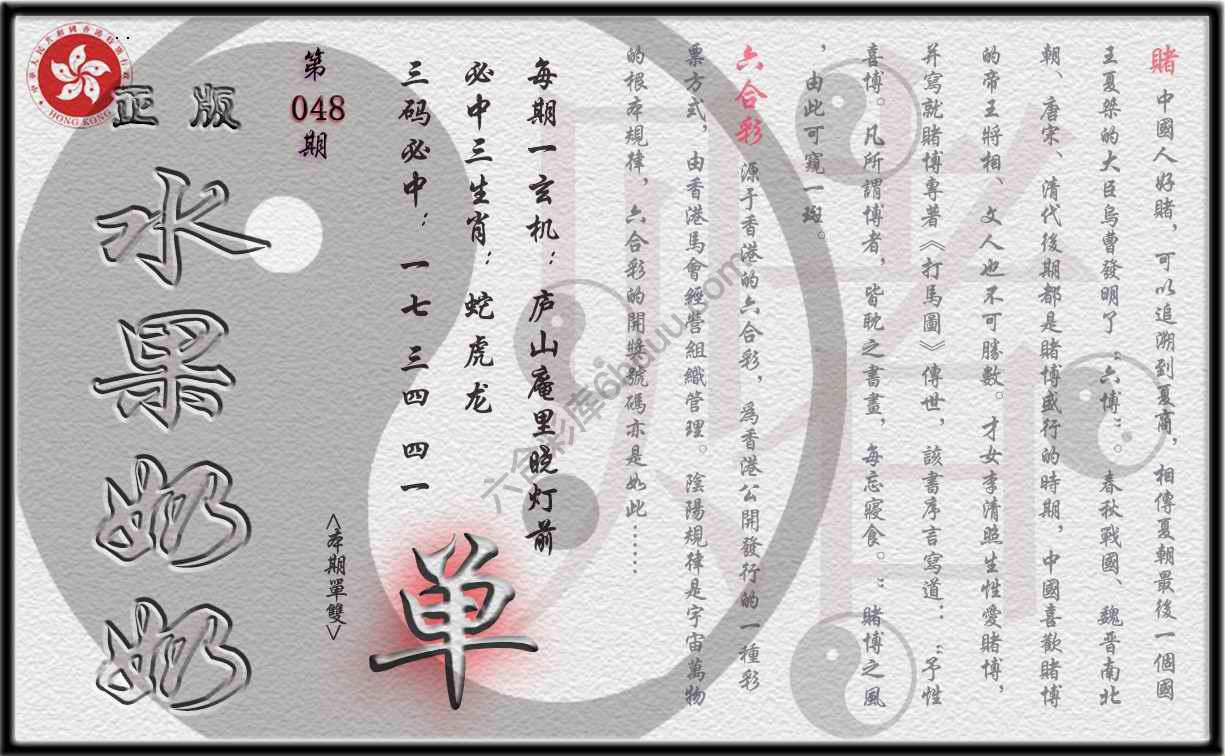 賭 中國人好賭，可以追溯到夏商，相傳夏朝最後一個國
王夏桀的大臣烏曹發明了“六博”。春秋戰國、魏晋南北
朝、唐宋、清代後期都是賭博盛行的時期，中國喜歡賭博
的帝王將相、文人也不可勝數。才女李清照生性愛賭博，
并寫就賭博專著《打馬圖》傳世，該書序言寫道：“予性
喜博。凡所謂博者，皆耽之書畫，每忘寢食。”賭博之風
，由此可窺一斑。
六合彩 源于香港的六合彩，為香港公開發行的一種彩
票方式，由香港馬會經營組織管理。陰陽規律是宇宙萬物
的根本規律，六合彩的開獎號碼亦是如此……
每期一玄机：庐山庵里晓灯前
必中三生肖：蛇虎龙
三码必中：一七 三四 四一
第
048
期
<本期單雙>
单
正版
水果奶奶
HONG KONG
六合彩库6hduu.com